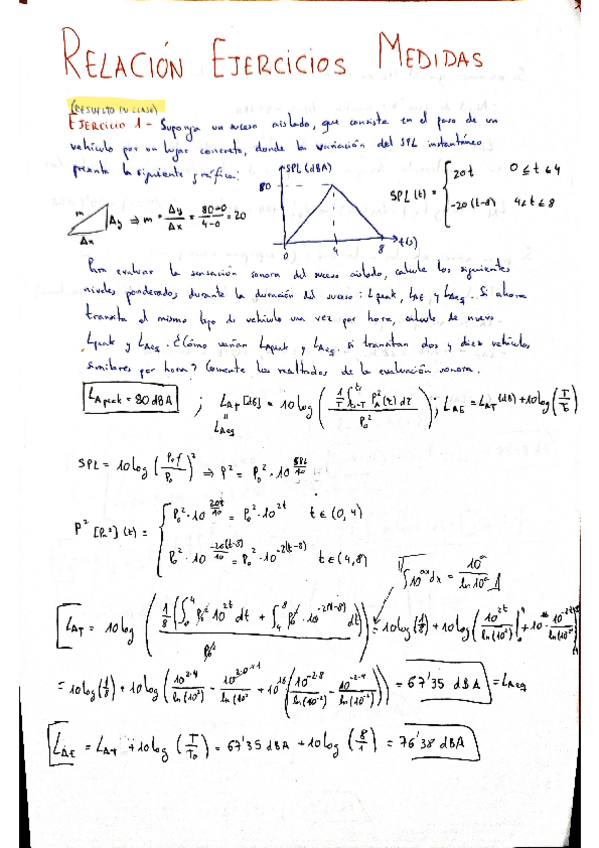 RELACIÓN EJERCICIOS MEDIDAS
(RESUELTO EN CLASE)
EJERCICIO 1 - Suponga un suceso aislado, que consiste en el paso de un
vehículo por un lugar concreto, donde la variación del SPL instantáneo
presenta la siguiente gráfica:
SPL (dBA)
80
0 4 8 t(s)
SPL(t) = { 20t 0 ≤ t ≤ 4
-20(t-8) 4 ≤ t ≤ 8
m Δy Δx ⇒ m = Δy/Δx = 80-0/4-0 = 20
Para evaluar la sensación sonora del suceso aislado, calcule los siguientes
niveles ponderados durante la duración del suceso: Lpeak, LAE y LAeq. Si ahora
transita el mismo tipo de vehículo una vez por hora, calcule de nuevo
Lpeak y LAeq. ¿Cómo varían LApeak y LAeq, si transitan dos y diez vehículos
similares por hora? Comente los resultados de la evaluación sonora.
LApeak = 80 dBA ; LAT [dB] = 10 log ( 1/T ∫ P_A²(τ) dτ / P₀² ) ; LAE = LAT (dB) + 10 log (T/T₀)
LAeq
SPL = 10 log (Pef/P₀)² ⇒ P² = P₀² · 10^(SPL/10)
P² [Pa²] (t) = { P₀² · 10^(20t/10) = P₀² · 10^(2t) t ∈ (0, 4)
P₀² · 10^(-20(t-8)/10) = P₀² · 10^(-2(t-8)) t ∈ (4, 8)
∫ 10^(ax) dx = 10^(a)/ln 10^(a)
LAT = 10 log ( 1/8 ( ∫₀⁴ P₀² 10^(2t) dt + ∫₄⁸ P₀² · 10^(-2(t-8)) dt ) / P₀² ) = 10 log (1/8) + 10 log ( 10^(2t)/ln(10²) |₀⁴ + 10
= 10 log (1/8) + 10 log ( 10^(2·4)/ln(10²) - 10^(2·0)/ln(10²) + 10^16 ( 10^(-2·8)/ln(10^-2) - 10^(-2·4)/ln(10^-2) ) ) = 67'35 dBA = LAeq
LAE = LAT + 10 log (T/T₀) = 67'35 dBA + 10 log (8/1) = 76'38 dBA